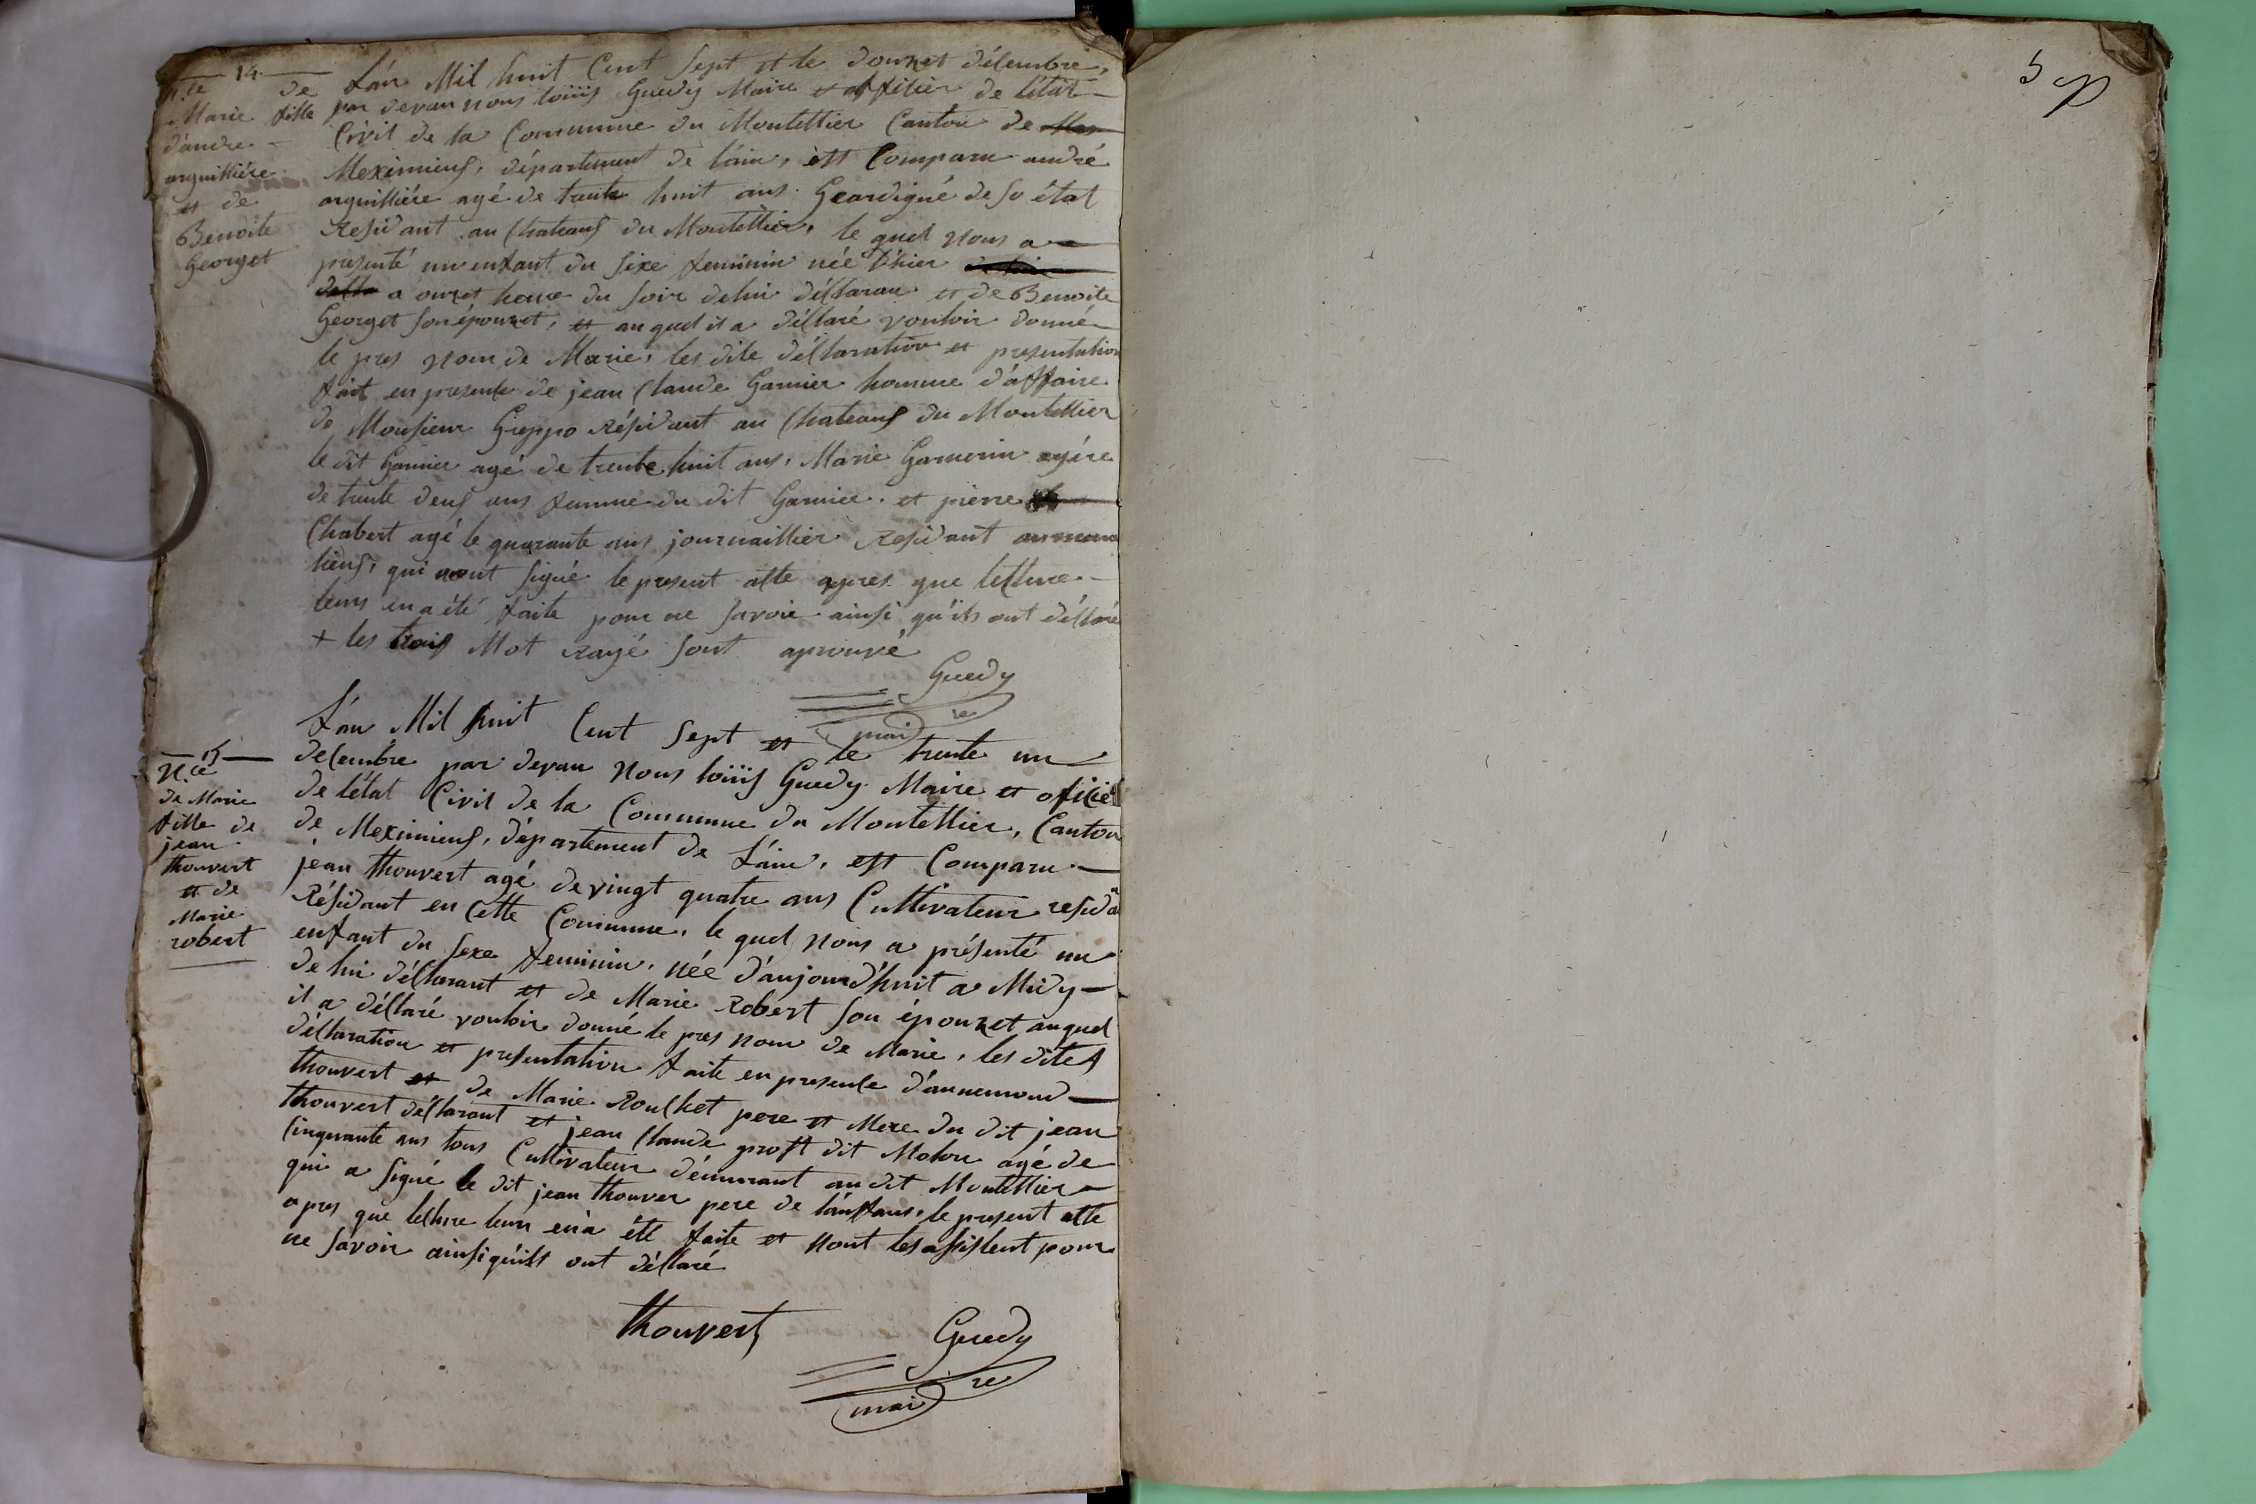 14.
n.ce de
Marie fille
d'andre
arguilliére
et de
Benoite
Georget
L'an Mil huit Cent Sept et le douzet délembre,
par devan nous loiiis Guedy Maire et offitier de létat
Civil de la Commune du Montellier Canton de
Meximieuf, département de l'ain, est Comparu andré
arguilliére agé de trente huit ans Geardigné de so état
Résidant au Chateauf du Montellier, le quel nous a
presenté un enfant du sixe feminin née d'hier
a onzet heure du soir de lui déclaran et de Benoite
Georget son épouzet, et au quel il a déclaré vouloir donné
le pres nom de Marie, les dite déclaration et presentation
fait en presente de jean Claude Garnier homme d'affaire
de Monsieur Greppo Résidant au Chateauf du Montellier
le dit Garnier agé de trente huit ans, Marie Gamerin agére
de trente deuf ans femme du dit Garnier. et pierre
Chabert agé le quarante ans journaillier Résidant au meme
lieuf, qui nont signé le present alte apres que lellure
leurs en a été faite pour ne savoir ainsi qu'ils ont déllaré
+ les trois Mot rayé sont aprouvé
Guedy
maire
15
N.ce
de Marie
fille de
jean
thouvert
et de
Marie
robert
L'an Mil huit Cent Sept et le trente un
delembre par devan Nous loiiis Guedy Maire et ofitier
de l'état Civil de la Commune du Montellier, Canton
de Meximieuf, département de L'ain, est Comparu
jean thouvert agé de vingt quatre ans Cultivateur resida
Résidant en Cette Commune, le quel nous a présenté un
enfant du sexe feminin, née d'aujourd'huit a Midy
de lui déllarant et de Marie Robert son épouzet au quel
il a déllaré vouloir donné le pres nom de Marie, les dites
déllaration et presentation faite en presente d'annemond
thouvert et de Marie Roulhet pere et Mere du dit jean
thouvert déllarant et jean Claude proft dit Molon agé de
Cinquante ans tous Cultivateur démurant au dit Montellier
qui a signé le dit jean thouver pere de lanfans, le present alte
apres que lellure leur en a éte faite et nont les assistent pour
ne savoir ainsi quilst ont déllaré
thouvert
Guedy
maire
5